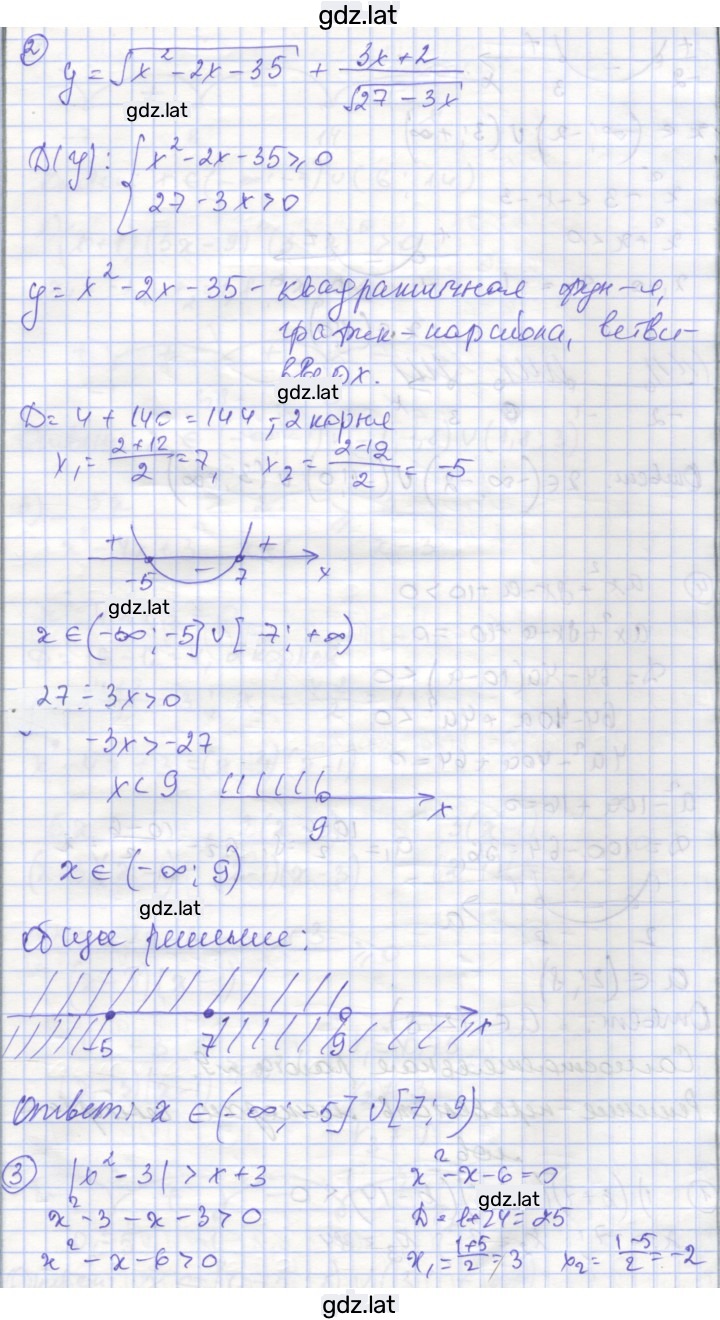 gdz.lat
② y = √(x² - 2x - 35) + (3x + 2)/√(27 - 3x)
gdz.lat
D(y): { x² - 2x - 35 ≥ 0
27 - 3x > 0
y = x² - 2x - 35 - квадратичная фун-я,
график - парабола, ветви -
вверх.
gdz.lat
D = 4 + 140 = 144, - 2 корня
x₁ = (2 + 12)/2 = 7, x₂ = (2 - 12)/2 = -5
+ - +
-5 7 x
gdz.lat
x ∈ (-∞; -5] ∪ [7; +∞)
27 - 3x > 0
-3x > -27
x < 9
9 x
x ∈ (-∞; 9)
gdz.lat
Общее решение:
-5 7 9 x
Ответ: x ∈ (-∞; -5] ∪ [7; 9)
③ |x² - 3| > x + 3
x² - 3 - x - 3 > 0
x² - x - 6 > 0
x² - x - 6 = 0
gdz.lat
D = 1 + 24 = 25
x₁ = (1+5)/2 = 3 x₂ = (1-5)/2 = -2
gdz.lat